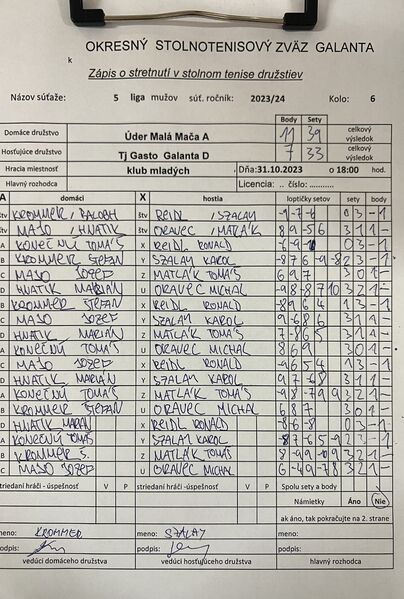 OKRESNÝ STOLNOTENISOVÝ ZVÄZ GALANTA
k
Zápis o stretnutí v stolnom tenise družstiev
Názov súťaže: 5 liga mužov súť. ročník: 2023/24 Kolo: 6
Body Sety
Domáce družstvo Úder Malá Mača A 11 39 celkový výsledok
Hosťujúce družstvo Tj Gasto Galanta D 7 33 celkový výsledok
Hracia miestnosť klub mladých Dňa: 31.10.2023 o 18:00 hod.
Hlavný rozhodca Licencia: .. číslo:...........
A domáci X hostia loptičky setov sety body
štv KROMMER, štv REIDL, SZALAY 03 -1
štv MAJO, HNATIK štv ORAVEC, MATLÁK 89-56 31 1-
A KONEČNÝ TOMÁŠ X REIDL RONALD 03 -1
B KROMMER ŠTEFAN Y SZALAY KAROL 23 -1
C MAJO JOZEF Z MATLÁK TOMÁŠ 697 30 1-
D HNATIK MARIÁN U ORAVEC MICHAL -98-8710 32 1-
B KROMMER ŠTEFAN X REIDL RONALD 13 -1
C MAJO JOZEF Y SZALAY KAROL 9-686 31 1-
D HNATIK MARIÁN Z MATLÁK TOMÁŠ 7-865 31 1-
A KONEČNÝ TOMÁŠ U ORAVEC MICHAL 30 1-
C MAJO JOZEF X REIDL RONALD 13 -1
D HNATIK MARIÁN Y SZALAY KAROL 97-68 31 1-
A KONEČNÝ TOMÁŠ Z MATLÁK TOMÁŠ 32 1-
B KROMMER ŠTEFAN U ORAVEC MICHAL 687 30 1-
D HNATIK MARIAN X REIDL RONALD -8-6-8 03 -1
A KONEČNÝ TOMÁŠ Y SZALAY KAROL -87-65-9 23 -1
B KROMMER Š. Z MATLÁK TOMÁŠ 32 1-
C MAJO JOZEF U ORAVEC MICHAL 6-49-78 32 1-
striedaní hráči - úspešnosť V P striedaní hráči - úspešnosť V P Spolu sety a body
Námietky Áno Nie
ak áno, tak pokračujte na 2. strane
meno: KROMMER meno: SZALAY
podpis: podpis:
vedúci domáceho družstva vedúci hosťujúceho družstva hlavný rozhodca